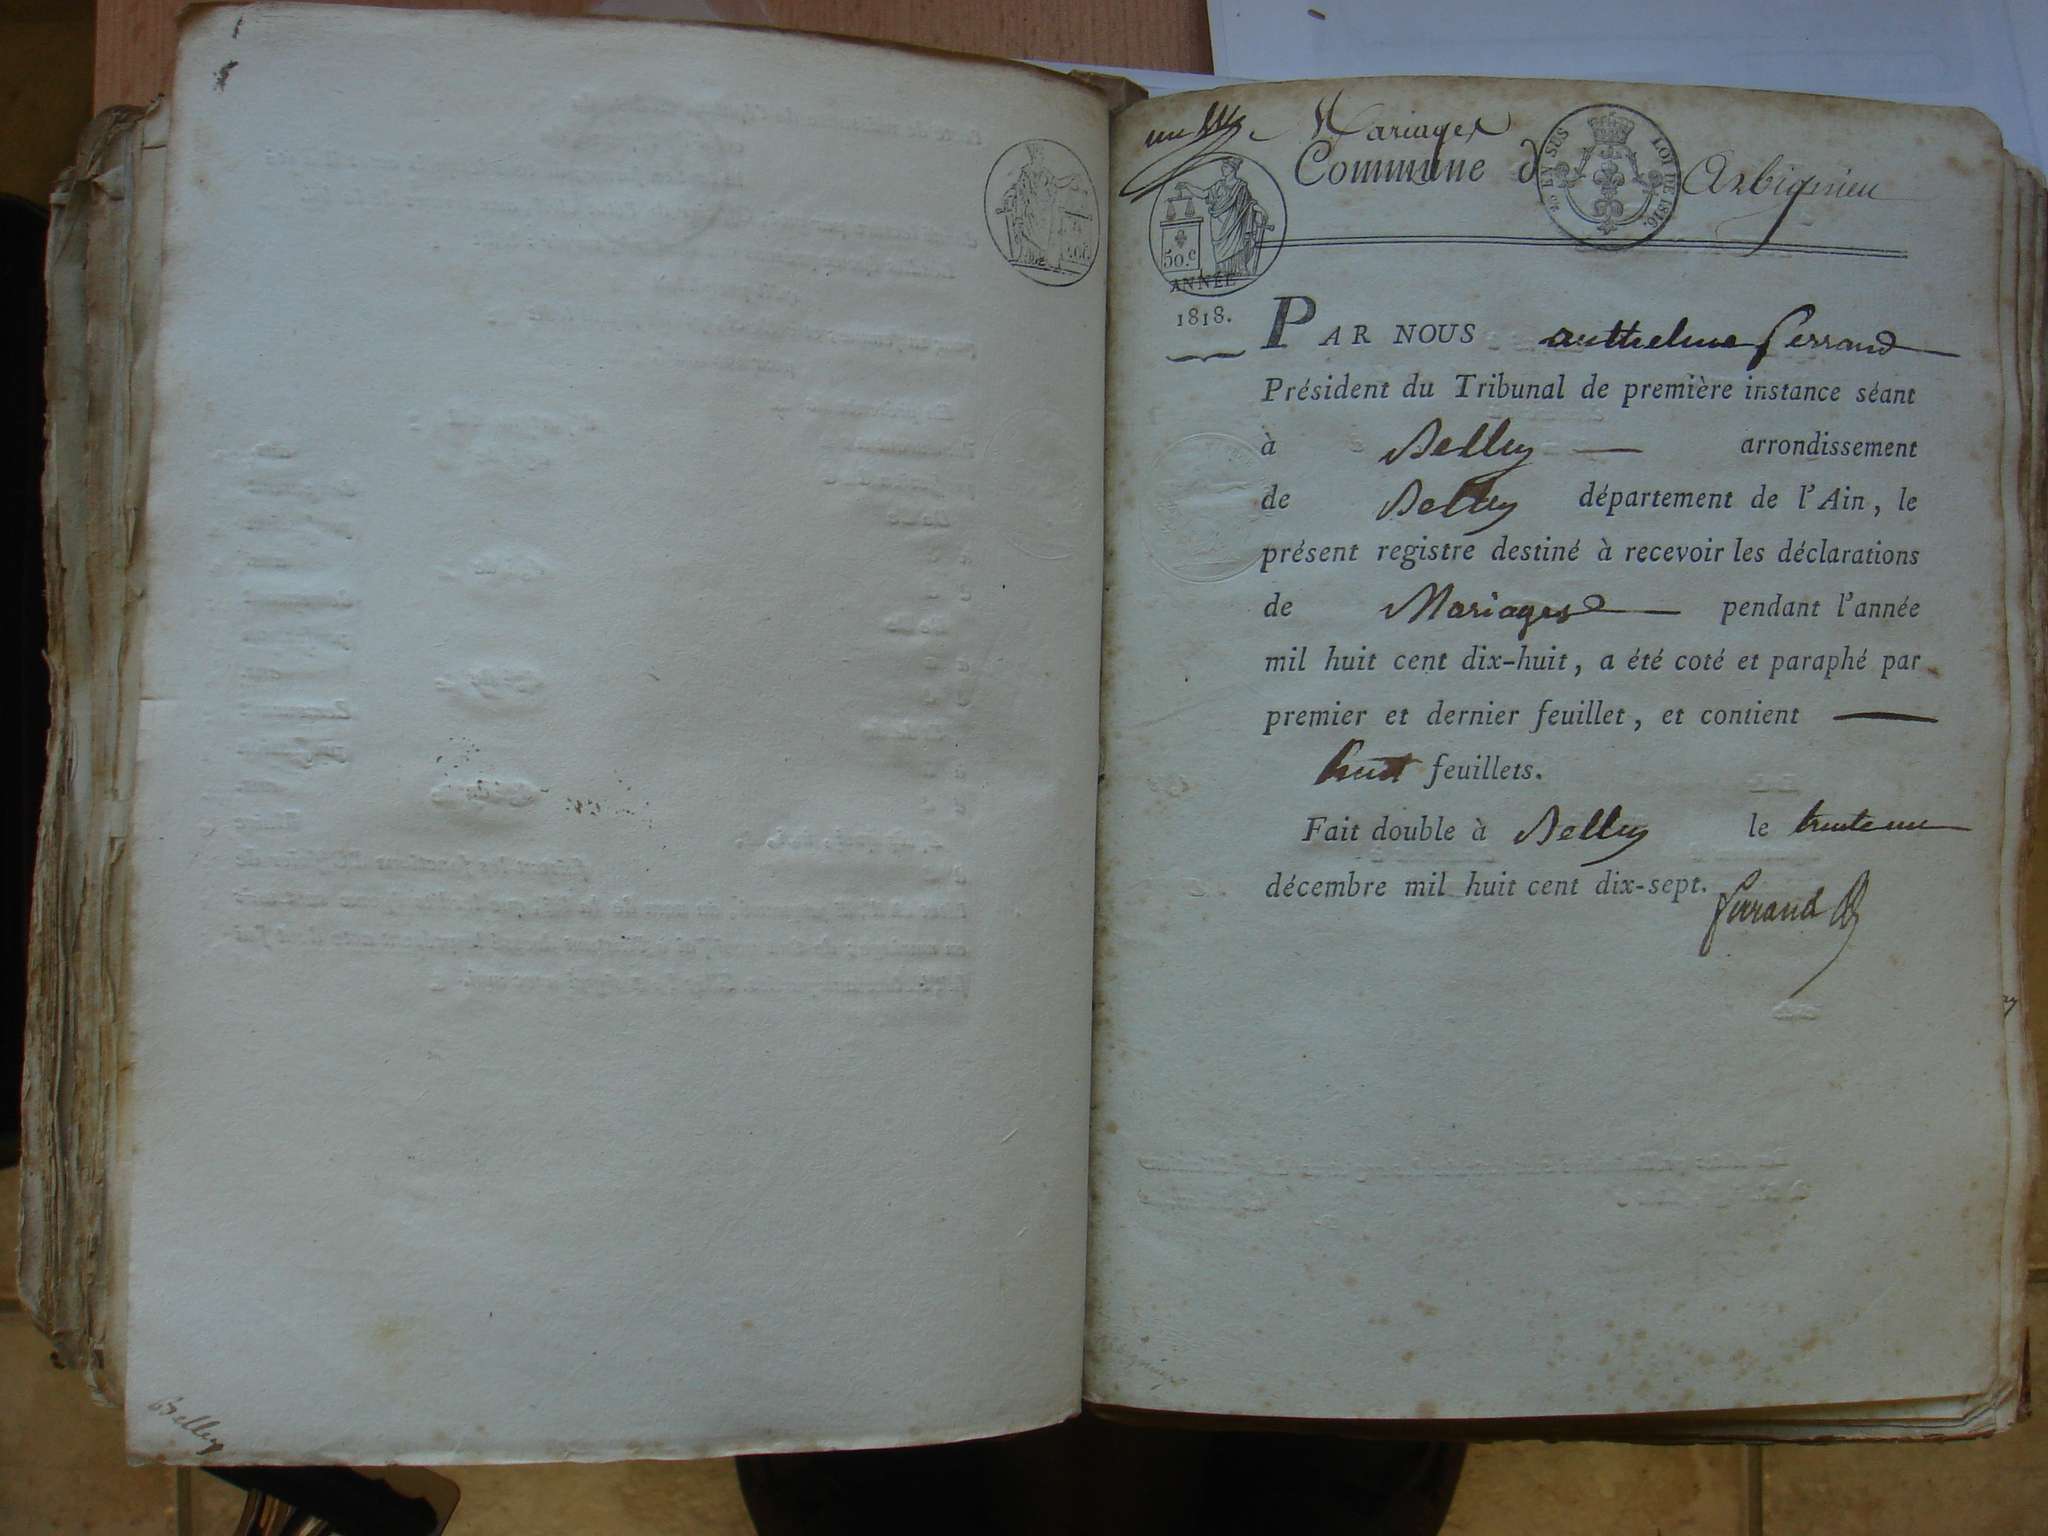 Belley
Mariages
Commune d'Arbignieu
20e EN SUS LOI DE 1816.
50.c
ANNÉE
1818.
PAR NOUS anthelme ferrand
Président du Tribunal de première instance séant
à Belley arrondissement
de Belley département de l'Ain, le
présent registre destiné à recevoir les déclarations
de Mariages pendant l'année
mil huit cent dix-huit, a été coté et paraphé par
premier et dernier feuillet, et contient
huit feuillets.
Fait double à Belley le trente un
décembre mil huit cent dix-sept.
ferrand